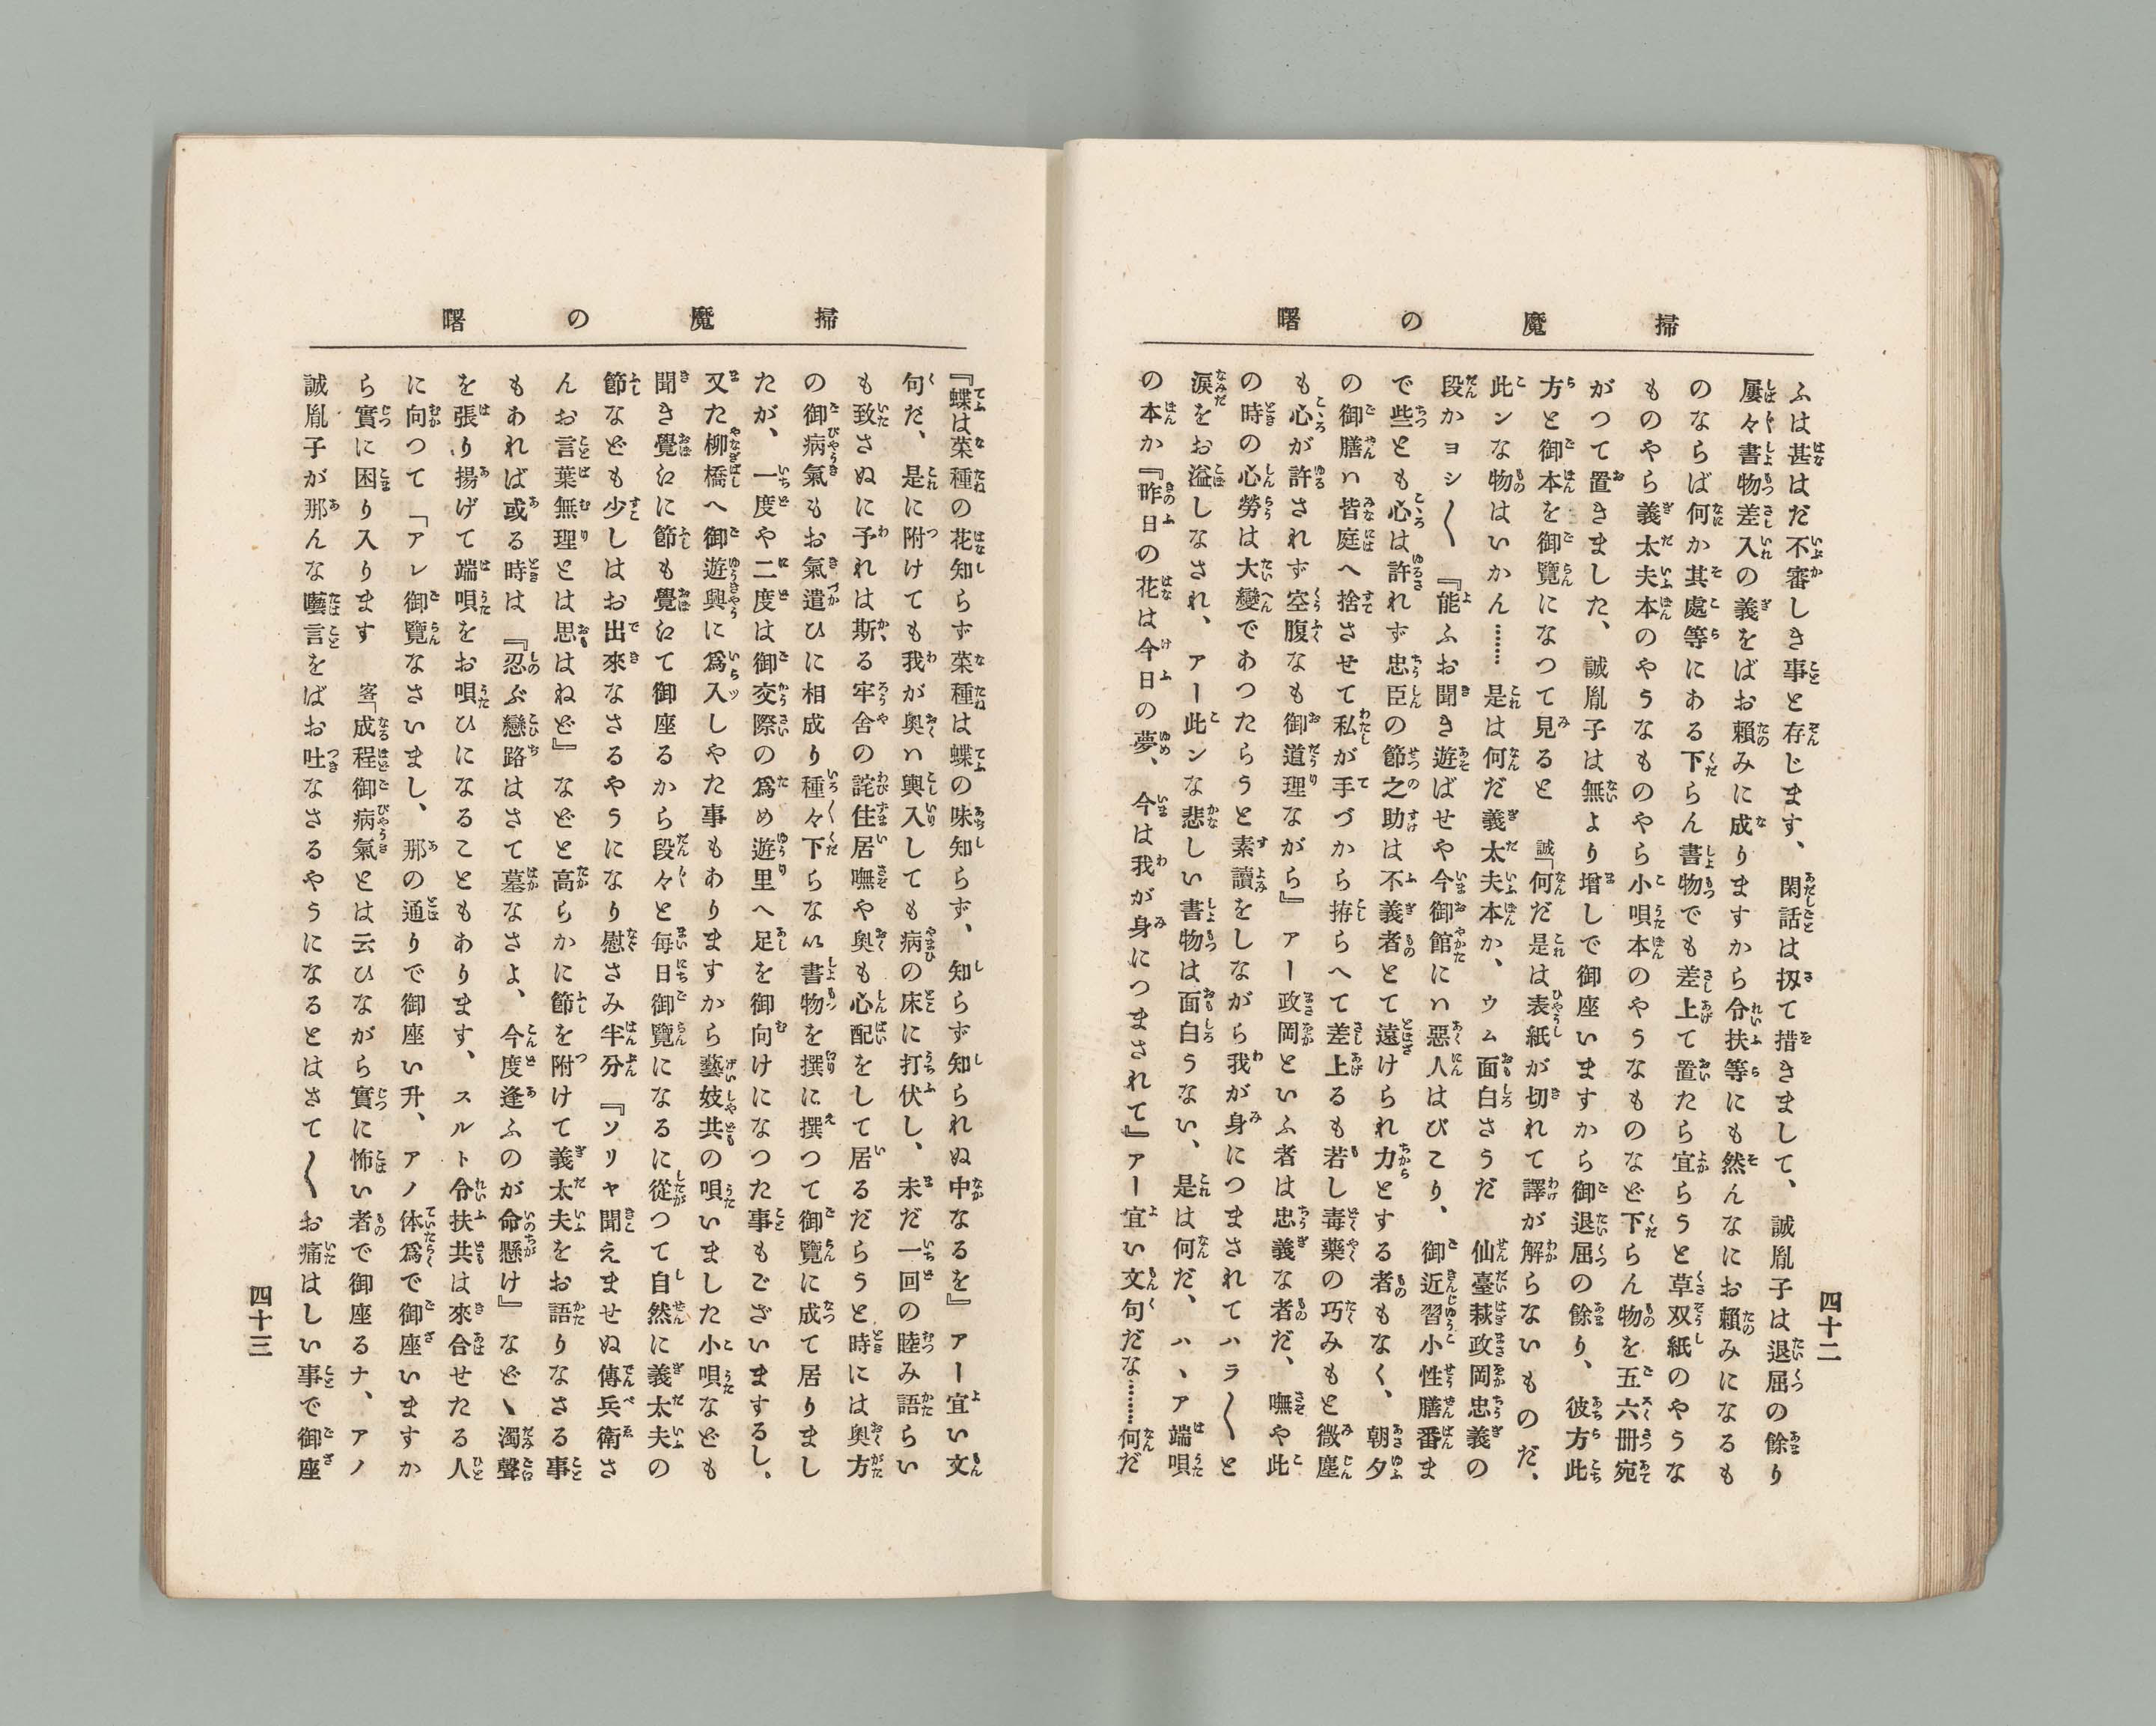 掃魔の曙
ふは甚はだ不審しき事と存じます、閑話は扨て措きまして、誠胤子は退屈の餘り
屢々書物差入の義をばお賴みに成りますから令扶等にも然んなにお賴みになるも
のならば何か其處等にある下らん書物でも差上て置たら宜からうと草双紙のやうな
ものやら義太夫本のやうなものやら小唄本のやうなものなど下らん物を五六冊宛
がつて置きました、誠胤子は無より增しで御座いますから御退屈の餘り、彼方此
方と御本を御覽になつて見ると　誠「何だ是は表紙が切れて譯が解らないものだ、
此ンな物はいかん……是は何だ義太夫本か、ウム面白さうだ　仙臺萩政岡忠義の
段かヨシ〱『能ふお聞き遊ばせや今御館にハ惡人はびこり、御近習小性膳番ま
で些とも心は許れず忠臣の節之助は不義者とて遠けられ力とする者もなく、朝夕
の御膳ハ皆庭へ捨させて私が手づから拵らへて差上るも若し毒藥の巧みもと微塵
も心が許されず空腹なも御道理ながら』アー政岡といふ者は忠義な者だ、嘸や此
の時の心勞は大變であつたらうと素讀をしながら我が身につまされてハラ〱と
淚をお溢しなされ、アー此ンな悲しい書物は面白うない、是は何だ、ハヽア端唄
の本か『昨日の花は今日の夢、今は我が身につまされて』アー宜い文句だな……何だ
四十二
掃魔の曙
『蝶は菜種の花知らず菜種は蝶の味知らず、知らず知られぬ中なるを』アー宜い文
句だ、是に附けても我が奥ハ輿入しても病の床に打伏し、未だ一回の睦み語らい
も致さぬに予れは斯る牢舍の詫住居嘸や奥も心配をして居るだらうと時には奥方
の御病氣もお氣遣ひに相成り種々下らな以書物を撰に撰つて御覽に成て居りまし
たが、一度や二度は御交際の爲め遊里へ足を御向けになつた事もございまするし、
又た柳橋へ御遊興に爲入ッしやた事もありますから藝妓共の唄いました小唄なども
聞き覺江に節も覺江て御座るから段々と每日御覽になるに從つて自然に義太夫の
節なども少しはお出來なさるやうになり慰さみ半分『ソリヤ聞えませぬ傳兵衛さ
んお言葉無理とは思はねど』などと高らかに節を附けて義太夫をお語りなさる事
もあれば或る時は『忍ぶ戀路はさて墓なさよ、今度逢ふのが命懸け』などゝ濁聲
を張り揚げて端唄をお唄ひになることもあります、スルト令扶共は來合せたる人
に向つて「アレ御覽なさいまし、那の通りで御座い升、アノ体爲で御座いますか
ら實に困り入ります　客「成程御病氣とは云ひながら實に怖い者で御座るナ、アノ
誠胤子が那んな囈言をばお吐なさるやうになるとはさて〱お痛はしい事で御座
四十三